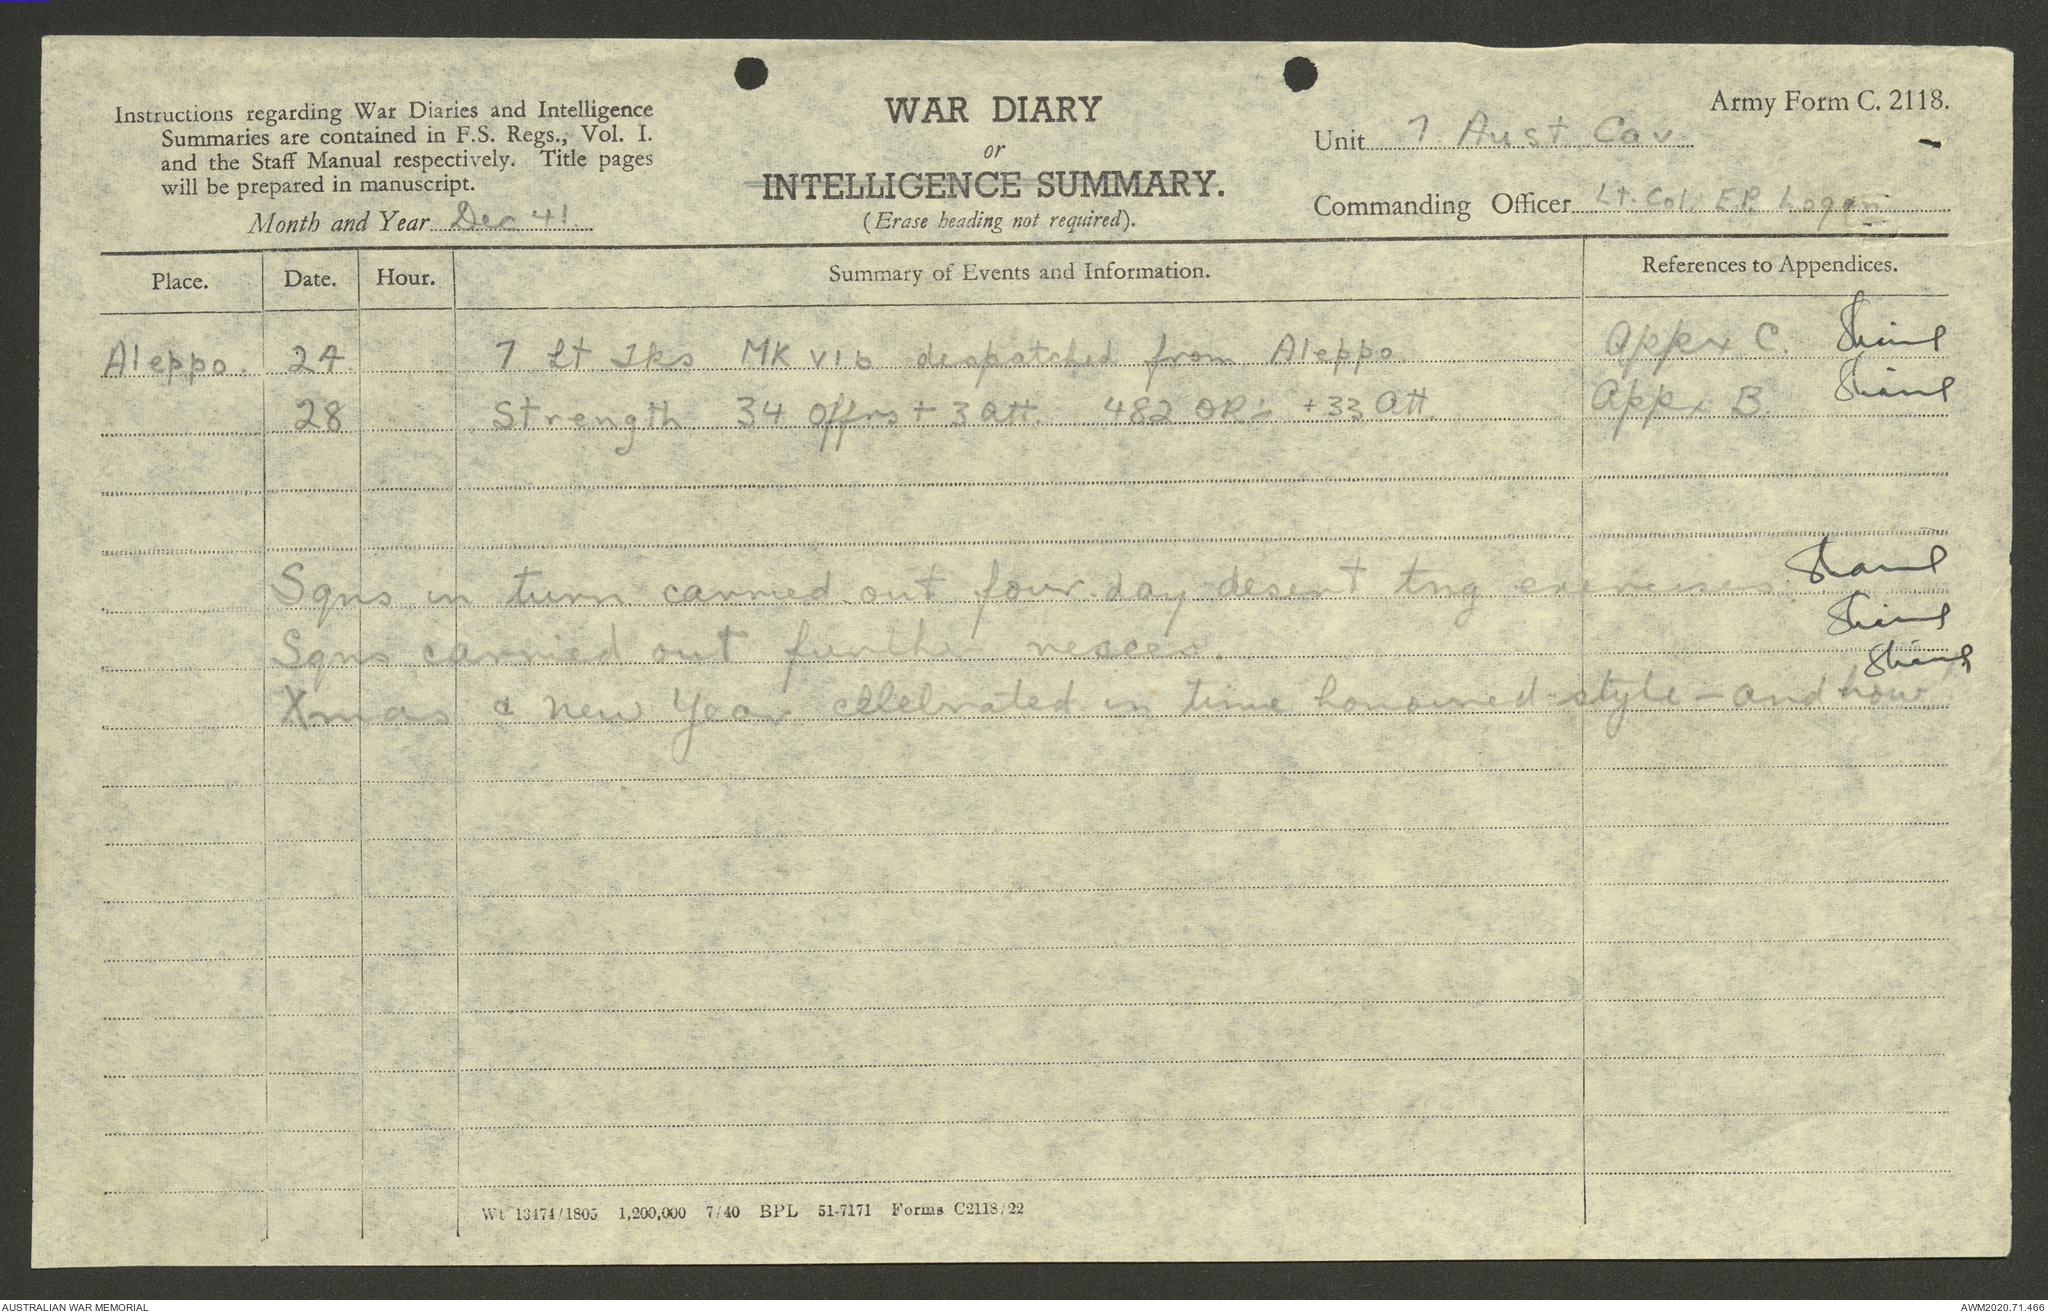 Army Form C. 2118.
WAR DIARY
or
INTELLIGENCE SUMMARY.
(Erase heading not required).
Instructions regarding War Diaries and Intelligence
Summaries are contained in F.S. Regs., Vol. I.
and the Staff Manual respectively. Title pages
will be prepared in manuscript.
Month and Year Dec 41
Unit 7 Aust Cav
Commanding Officer Lt. Col. E.P. Logan
Place. Date. Hour. Summary of Events and Information. References to Appendices.
Aleppo. 24. 7 Lt Tks MK VI b despatched from Aleppo. Appx C.
28 Strength 34 Offrs + 3 att. 482 OR's + 33 att Appx B.
Sqns in turn carried out four day desert tng exercises.
Sqns carried out further recces.
Xmas & New Year celebrated in time honoured style - and how
Wt 13474/1805 1,200,000 7/40 BPL 51-7171 Forms C2118/22
AUSTRALIAN WAR MEMORIAL
AWM2020.71.466